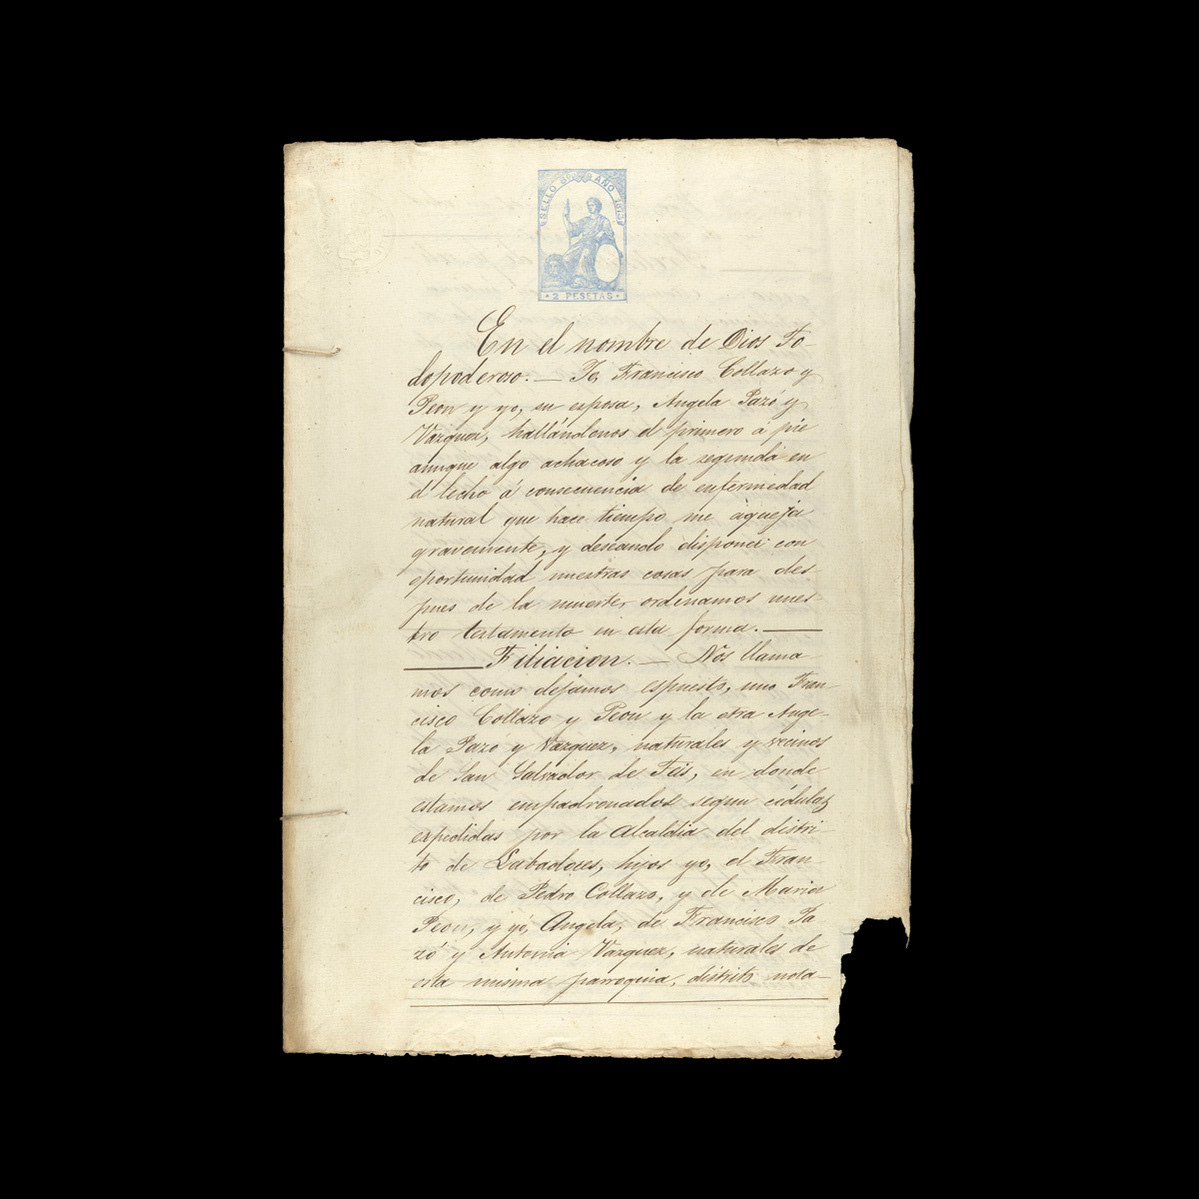 SELLO 8º AÑO 1878
2 PESETAS
En el nombre de Dios To-
dopoderoso. — Yo, Francisco Collazo y
Peon y yo, su esposa, Angela Pazó y
Vazquez, hallándonos el primero á pie
aunque algo achacoso y la segunda en
el lecho á consecuencia de enfermedad
natural que hace tiempo me aqueja
gravemente, y deseando disponer con
oportunidad nuestras cosas para des
pues de la muerte ordenamos nues
tro testamento en esta forma. —
— Filiacion. — Nos llama
mos como dejamos espuesto, uno Fran-
cisco Collazo y Peon y la otra Ange-
la Pazó y Vazquez, naturales y vecinos
de San Salvador de Teis, en donde
estamos empadronados segun cédulas
expedidas por la Alcaldia del distri-
to de Labadores, hijos yo, el Fran-
cisco, de Pedro Collazo, y de Maria
Peon, y yó, Angela, de Francisco Pa
zó y Antonia Vazquez, naturales de
esta misma parroquia, distrito nota-